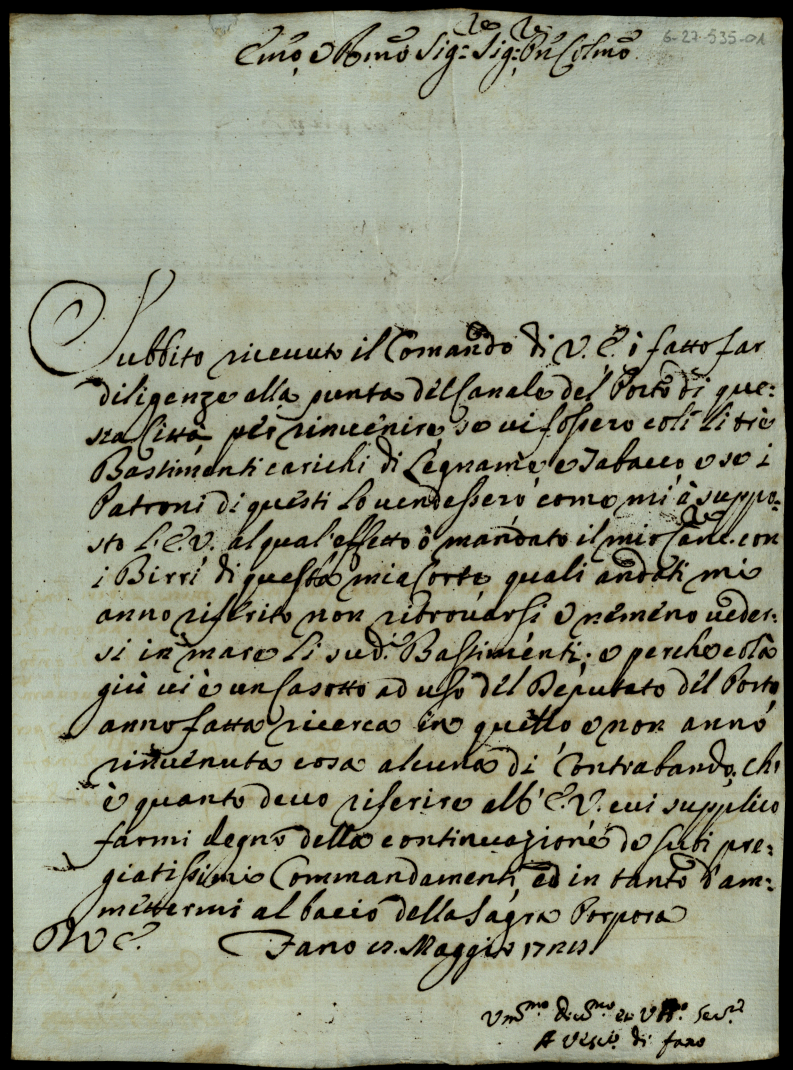 6-27-535-01
Emo e Rmo Sig.re Sig.re Pñ Colmo
Subbito riceuuto il Comando di V. E. ò fatto far
diligenze alla punta del Canale del Porto di que:
sta Città per rinuenire se ui fossero colì li trè
Bastimenti carichi di Legname e Tabacco e se i
Patroni di questi lo uendessero come mi à suppo:
sto L'E. V. al qual'effetto ò mandato il mio Canc.re con
i Birri di questa mia Corte quali andati mi
anno riferito non ritrouarsi e nemeno ueder:
si in mare li sud.i Bastimenti; e perche colà
giù ui è un Casotto ad uso del Deputato del Porto
anno fatta ricerca in quello e non anno
rinuenuta cosa alcuna di Contrabando. che
è quanto deuo riferire all'E. V. cui supplico
farmi degno della continuazione de suoi pre:
giatissimi Commandamenti, ed in tanto d'am:
mettermi al bacio della Sagra Porpora
D V E. Fano Maggio
Um.mo Deu.mo et Obb.o Seru.re
A Vesc.o di fano